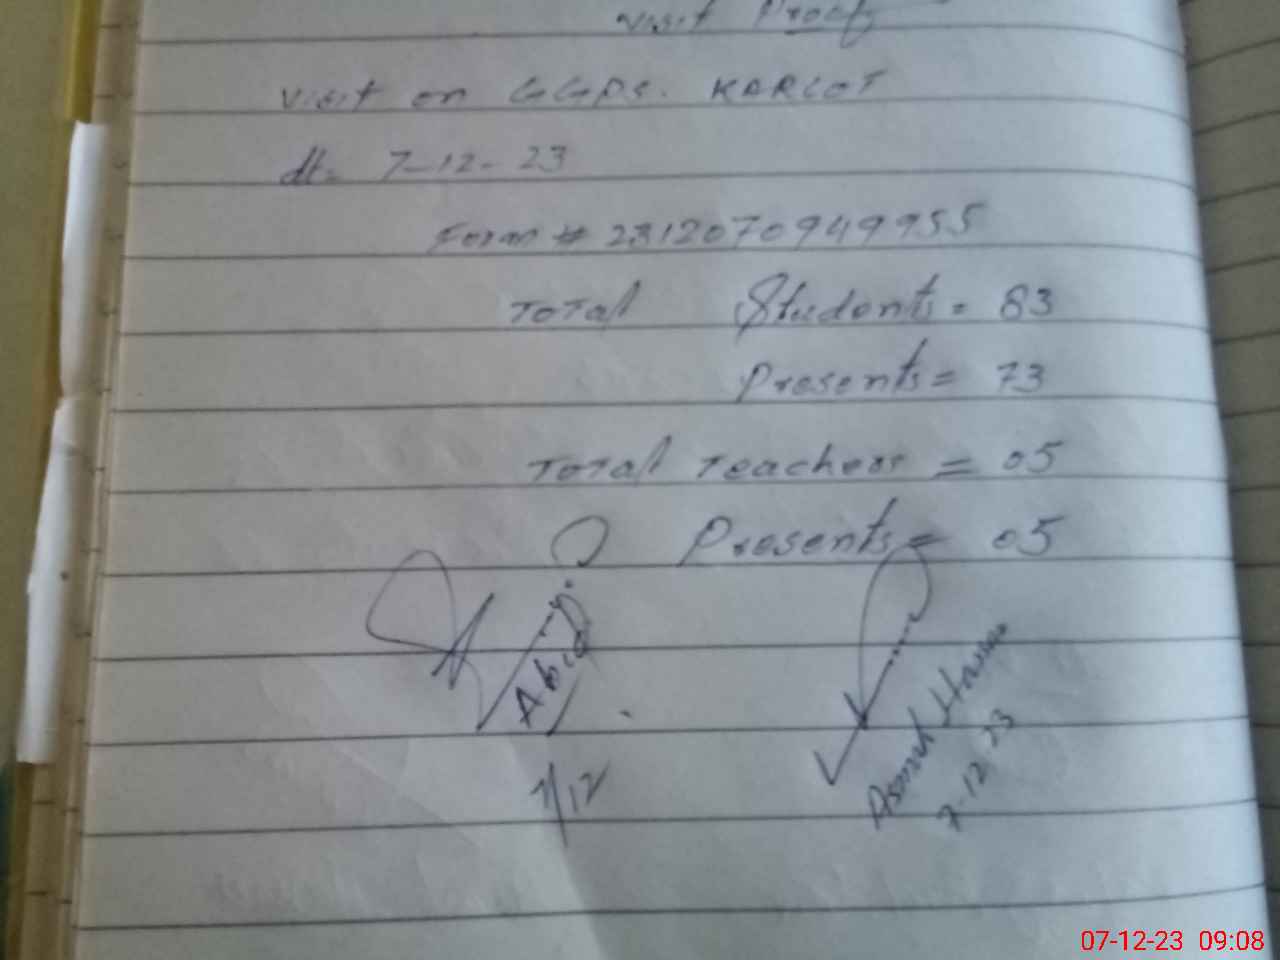 Visit Proof
Visit on GGPS. KARCOT
dt= 7-12-23
Form # 2312070949955
Total Students = 83
Presents = 73
Total Teachers = 05
Presents = 05
Abid
7/12
7-12-23
07-12-23 09:08